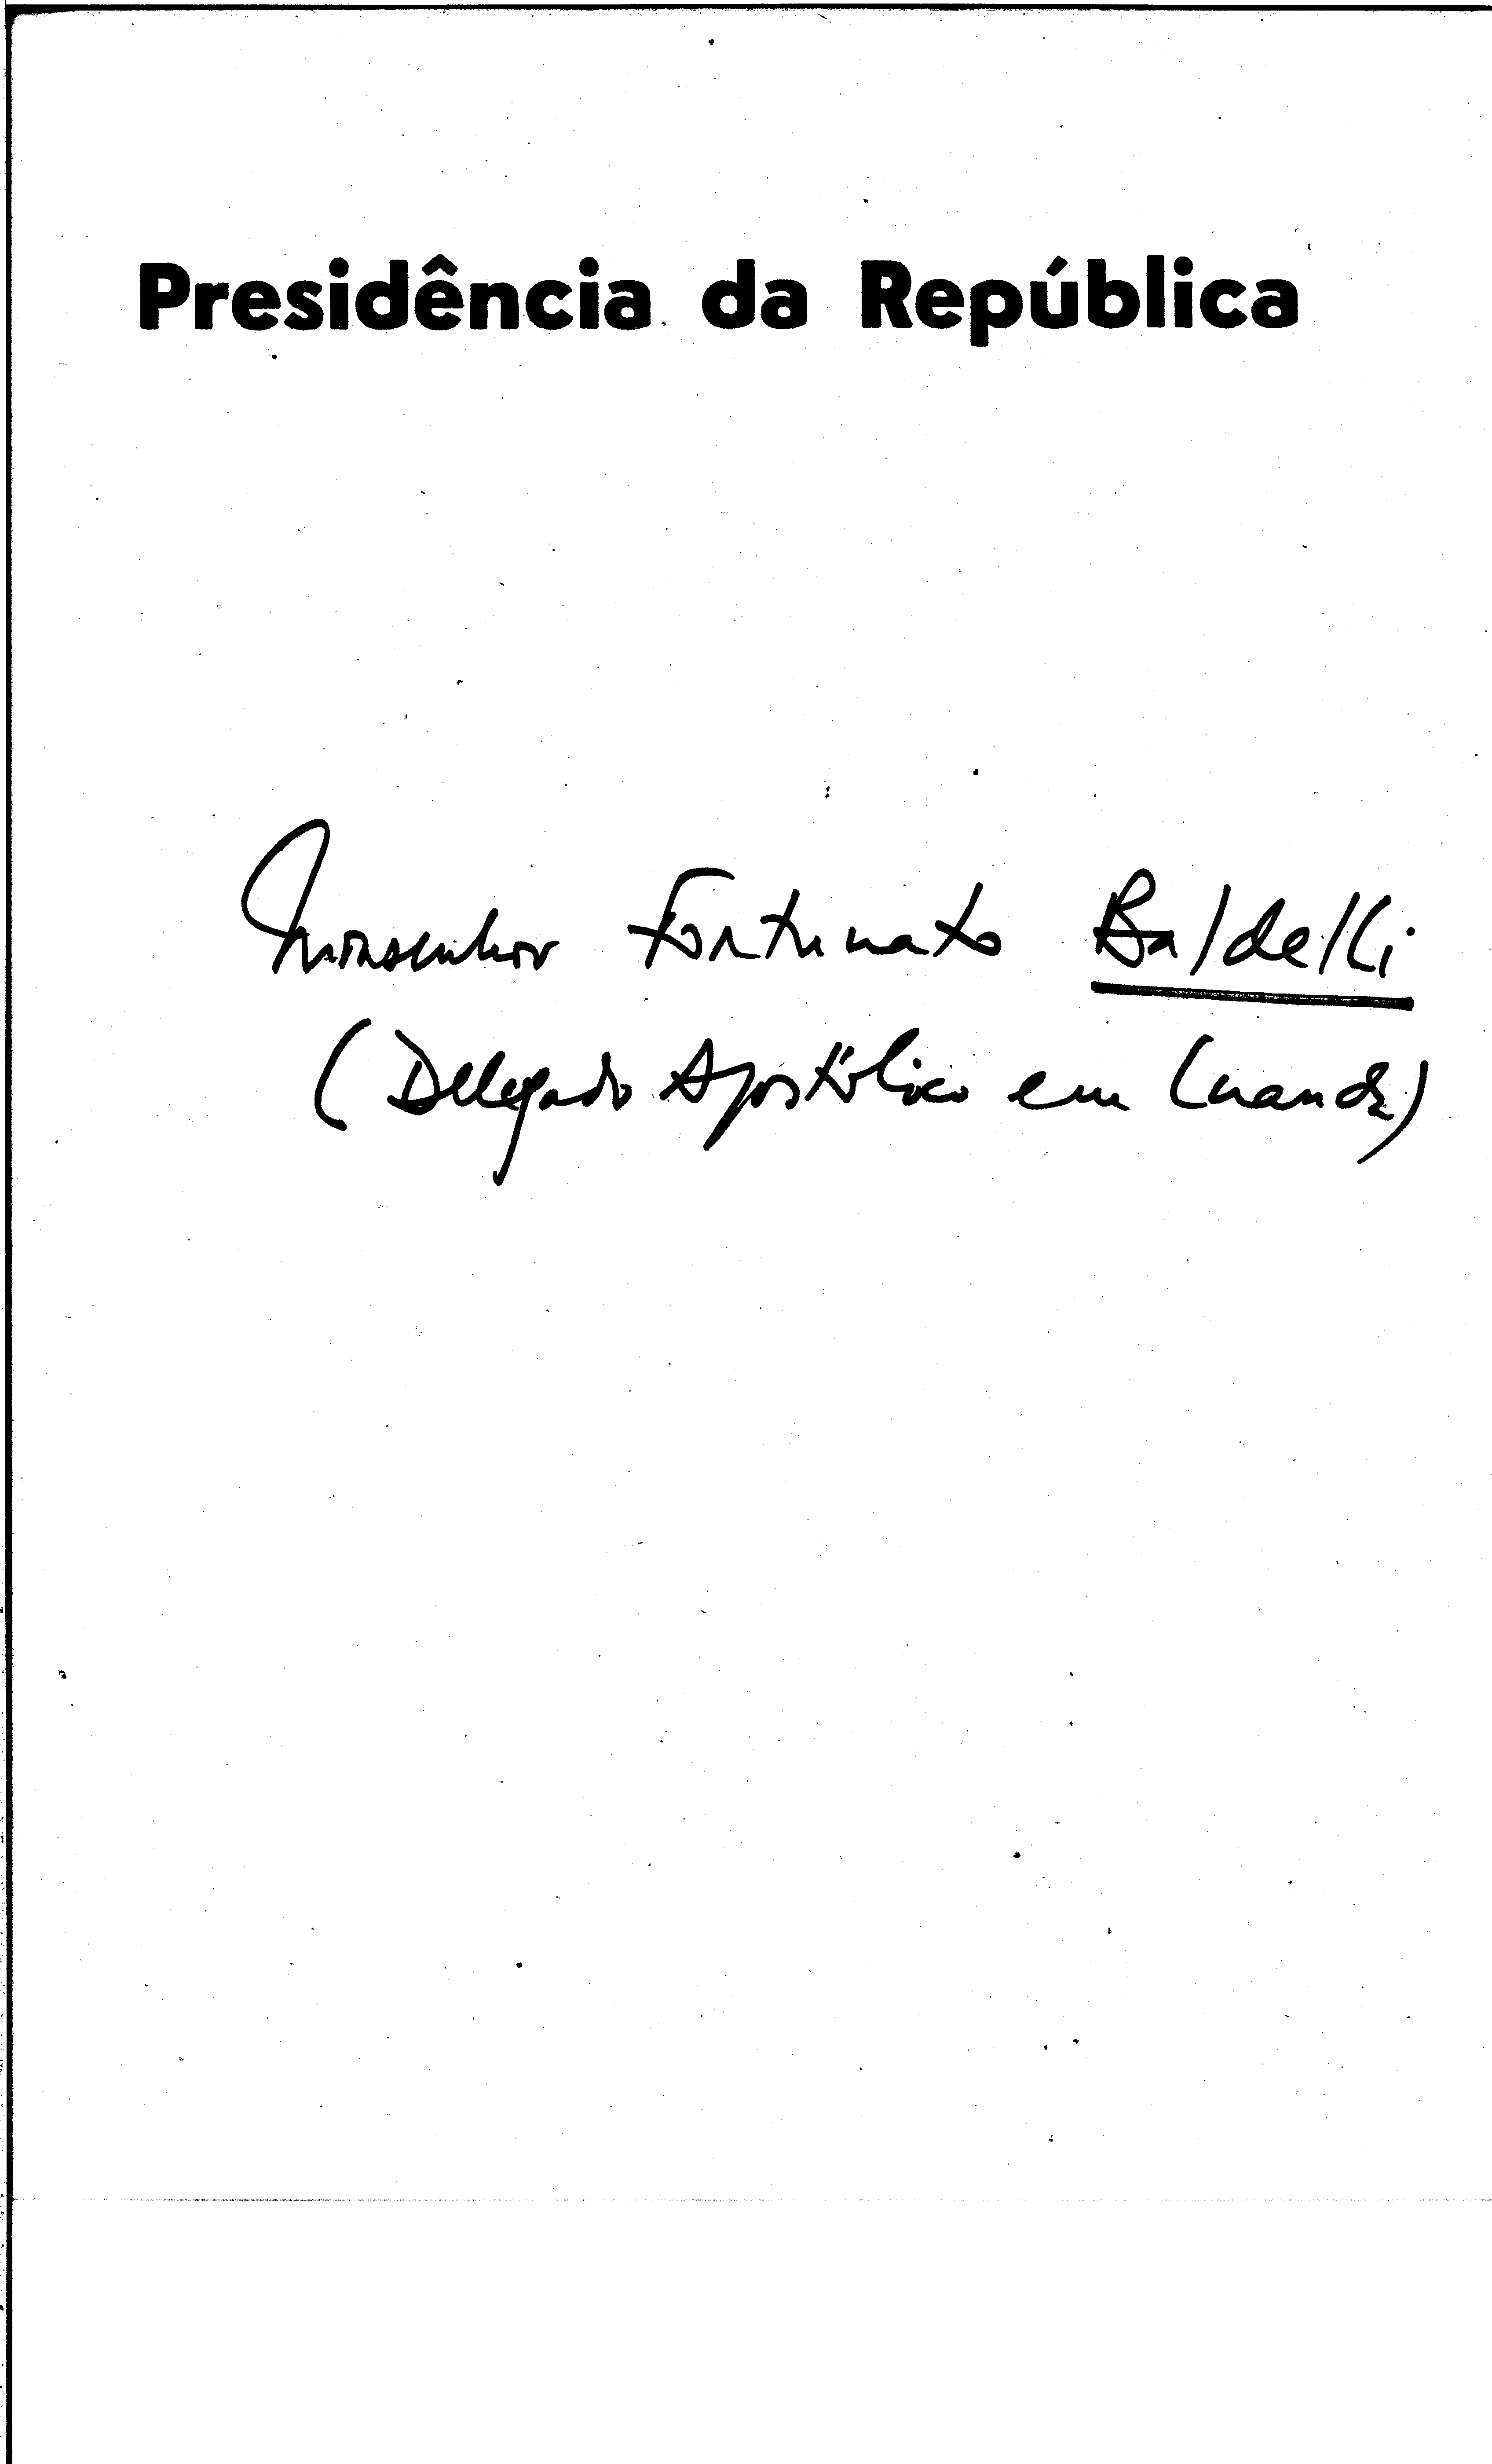 Presidência da República
Monsenhor Fortunato Baldelli
(Delegado Apostólico em Luanda)